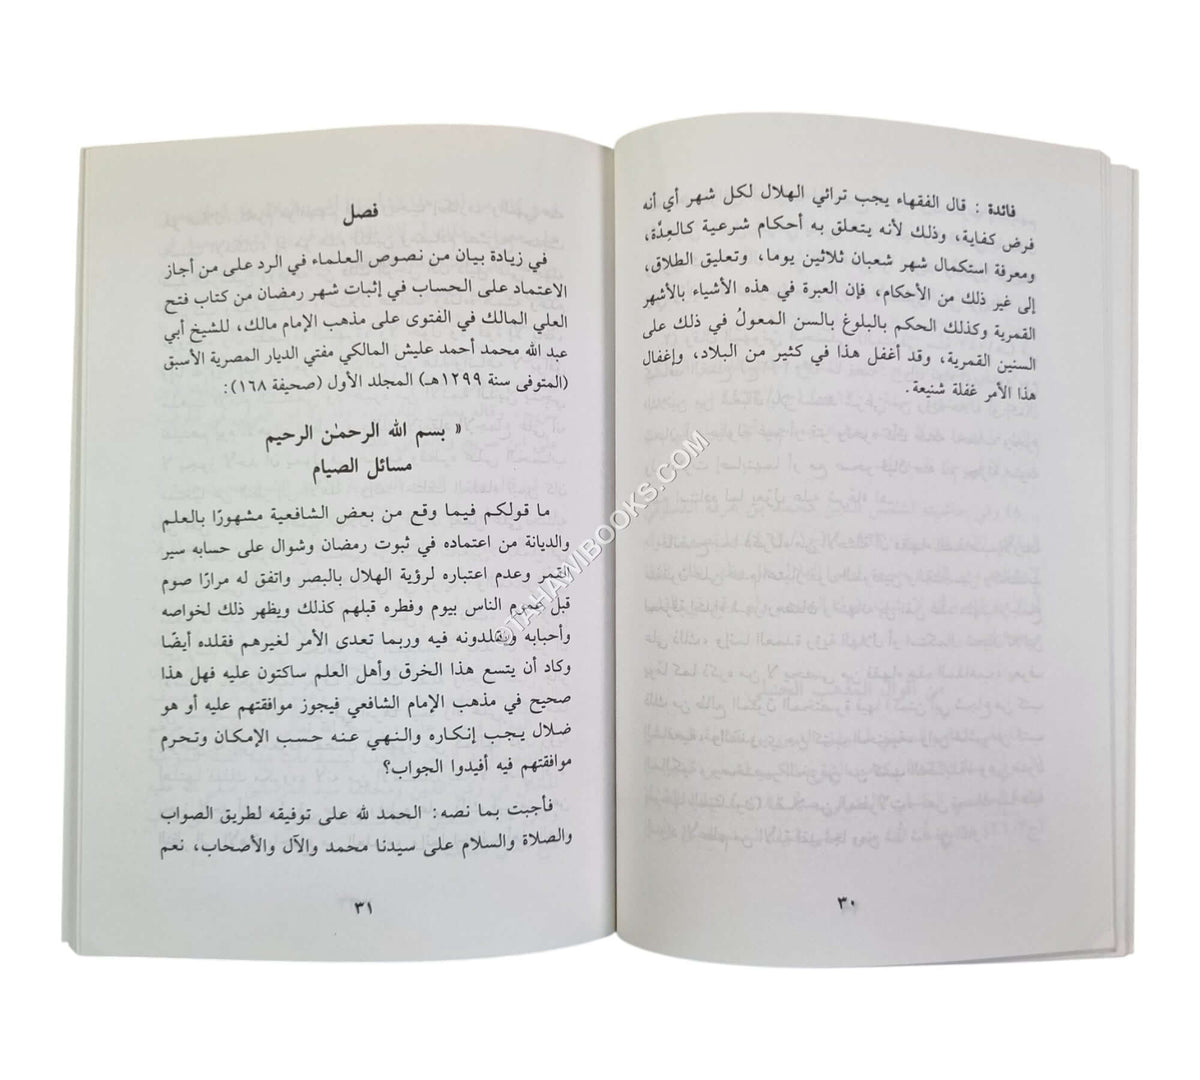 فائدة : قال الفقهاء يجب ترائي الهلال لكل شهر أي أنه
فرض كفاية، وذلك لأنه يتعلق به أحكام شرعية كالعِدَّة،
ومعرفة استكمال شهر شعبان ثلاثين يوما، وتعليق الطلاق،
إلى غير ذلك من الأحكام، فإن العبرة في هذه الأشياء بالأشهر
القمرية وكذلك الحكم بالبلوغ بالسن المعولُ في ذلك على
السنين القمرية، وقد أغفل هذا في كثير من البلاد، وإغفال
هذا الأمر غفلة شنيعة.
٣٠
فصل
في زيادة بيان من نصوص العلماء في الرد على من أجاز
الاعتماد على الحساب في إثبات شهر رمضان من كتاب فتح
العلي المالك في الفتوى على مذهب الإمام مالك، للشيخ أبي
عبد الله محمد أحمد عليش المالكي مفتي الديار المصرية الأسبق
(المتوفى سنة ١٢٩٩هـ) المجلد الأول (صحيفة ١٦٨):
« بسم الله الرحمـٰن الرحيم
مسائل الصيام
ما قولكم فيما وقع من بعض الشافعية مشهورًا بالعلم
والديانة من اعتماده في ثبوت رمضان وشوال على حسابه سير
القمر وعدم اعتباره لرؤية الهلال بالبصر واتفق له مرارًا صوم
قبل عموم الناس بيوم وفطره قبلهم كذلك ويظهر ذلك لخواصه
وأحبابه ويقلدونه فيه وربما تعدى الأمر لغيرهم فقلده أيضًا
وكاد أن يتسع هذا الخرق وأهل العلم ساكتون عليه فهل هذا
صحيح في مذهب الإمام الشافعي فيجوز موافقتهم عليه أو هو
ضلال يجب إنكاره والنهي عنه حسب الإمكان وتحرم
موافقتهم فيه أفيدوا الجواب؟
فأجبت بما نصه: الحمد لله على توفيقه لطريق الصواب
والصلاة والسلام على سيدنا محمد والآل والأصحاب، نعم
٣١
OTAHAWIBOOKS.COM